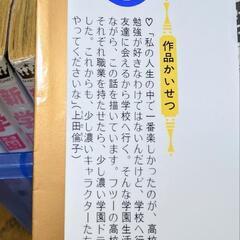 作品かいせつ
♡「私の人生の中で一番楽しかったのが、高校
勉強が好きなわけではないんだけど、学校へ行
友達に会えるから学校へ行く。そんな学園生活
ながら、この話を描いています。フツーの高校
それぞれ職業を持たせたら、少し濃い学園ドラ
した。これからも、少し濃いキャラクターたち
やってくださいな」(上田倫子)